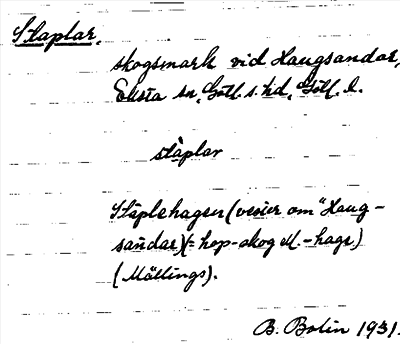 Staplar.
skogsmark vid Haugsandar,
Eksta sn, Gotl. s. hd, Gotl. l.
stàplar
Stàplehagen (vester om "Haug-
sandar) (= hop-skog M.-hage)
(Mällings).
B. Bolin 1931.